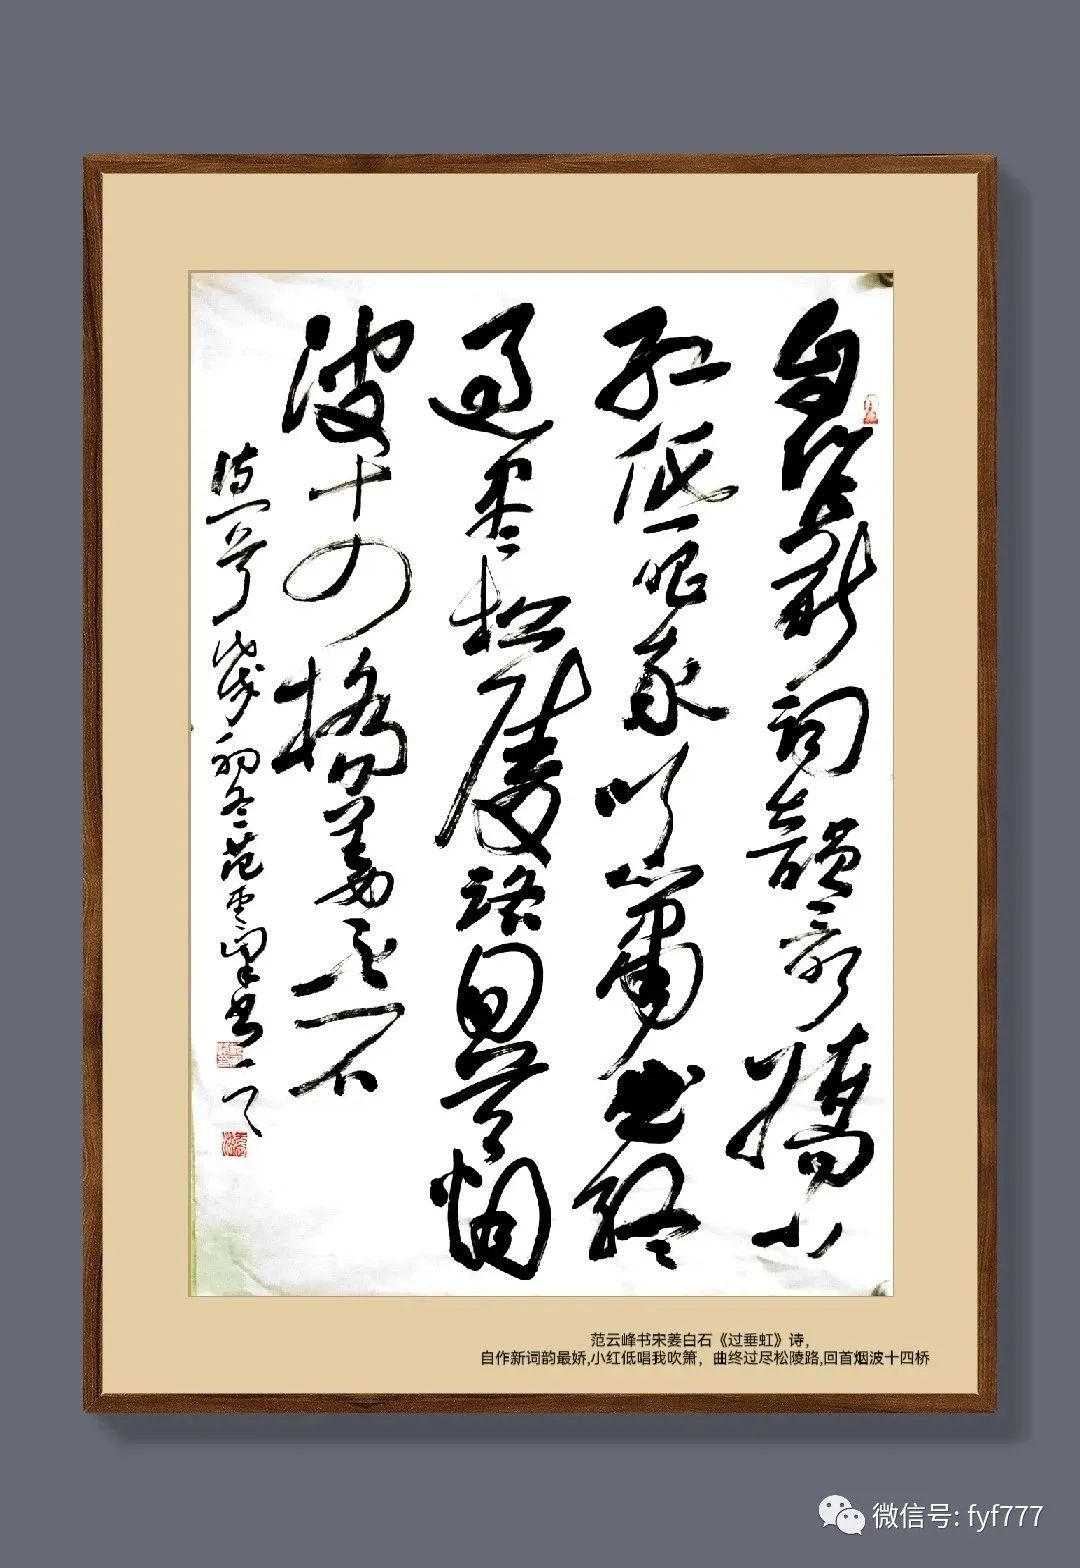 自作新詞韻最嬌小
紅低唱我吹簫曲終
過盡松陵路回首烟
波十四橋姜
歲初冬范雲峰書
范云峰书宋姜白石《过垂虹》诗，
自作新词韵最娇,小红低唱我吹箫，曲终过尽松陵路,回首烟波十四桥
微信号: fyf777